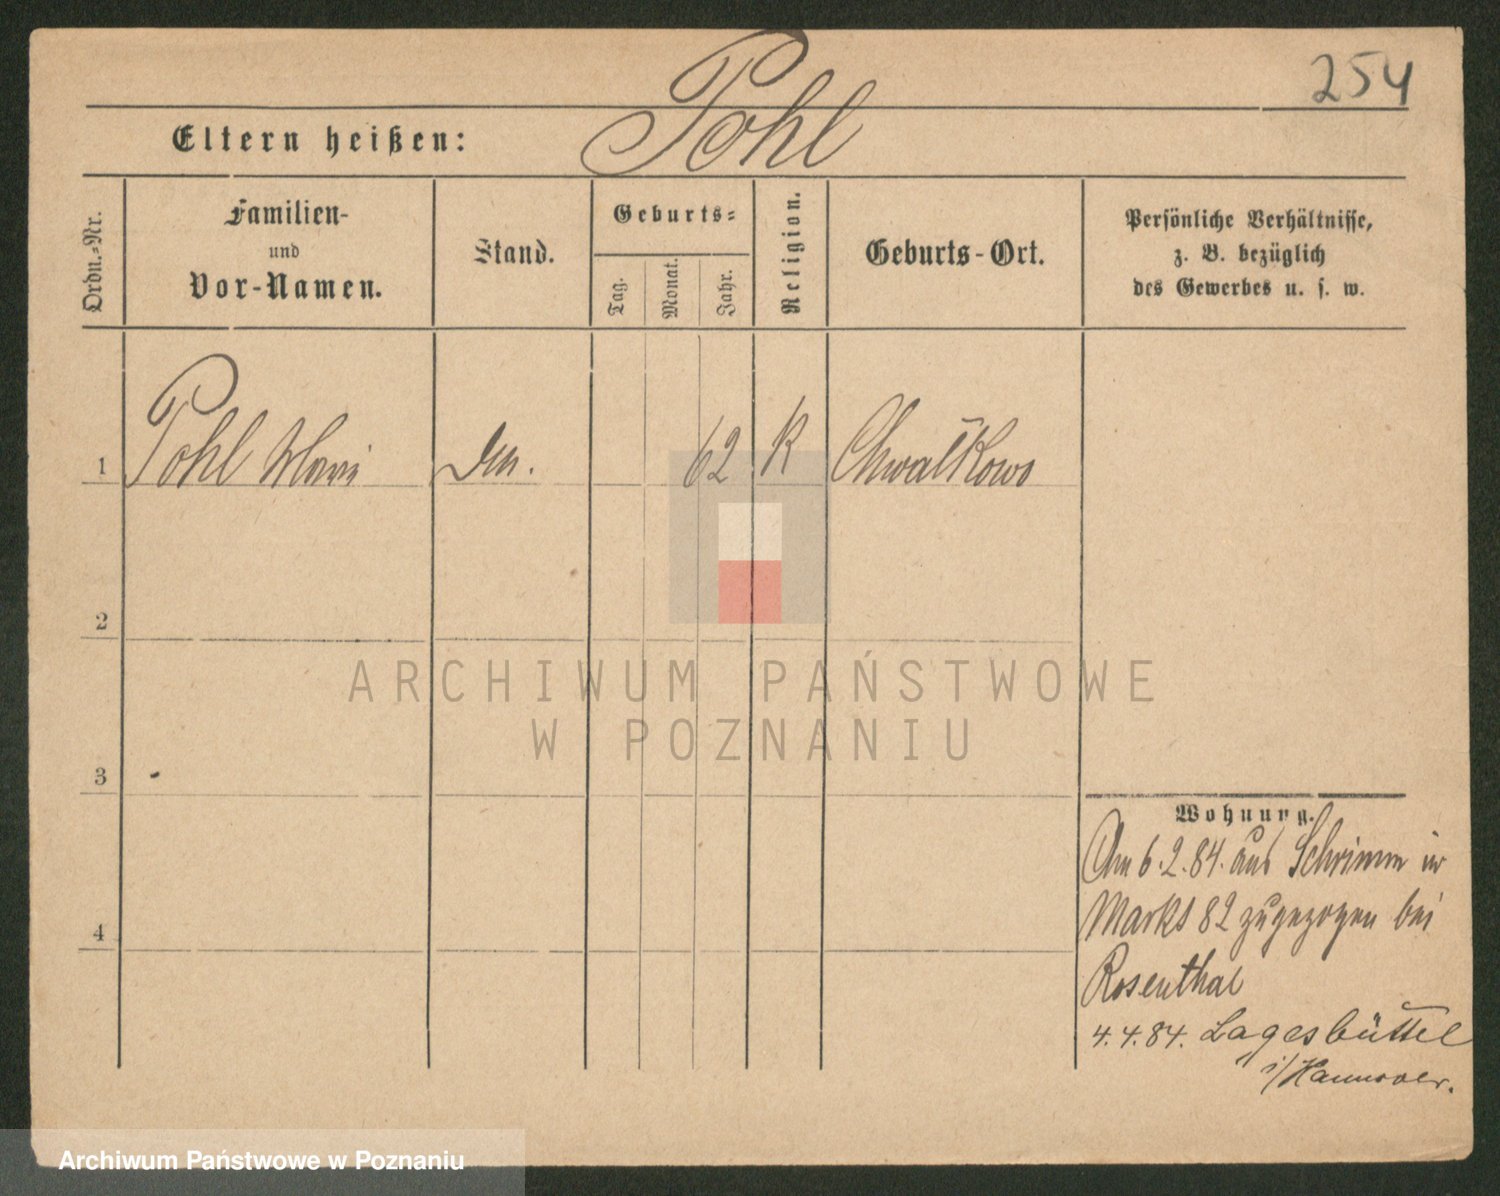 254
Pohl
Eltern heißen:
Ordn.-Nr.
Familien-
und
Vor-Namen.
Stand.
Geburts-
Tag.
Monat.
Jahr.
Religion.
Geburts-Ort.
Persönliche Verhältnisse,
z. B. bezüglich
des Gewerbes u. s. w.
1 Pohl Mari 62 K Chwałkowo
2
3
4
ARCHIWUM PAŃSTWOWE
W POZNANIU
Wohnung.
Am 6.2.84. aus Schrimm in
Markt 82 zugezogen bei
Rosenthal
4.4.84. Lagesbüttel
i/Hannover.
Archiwum Państwowe w Poznaniu